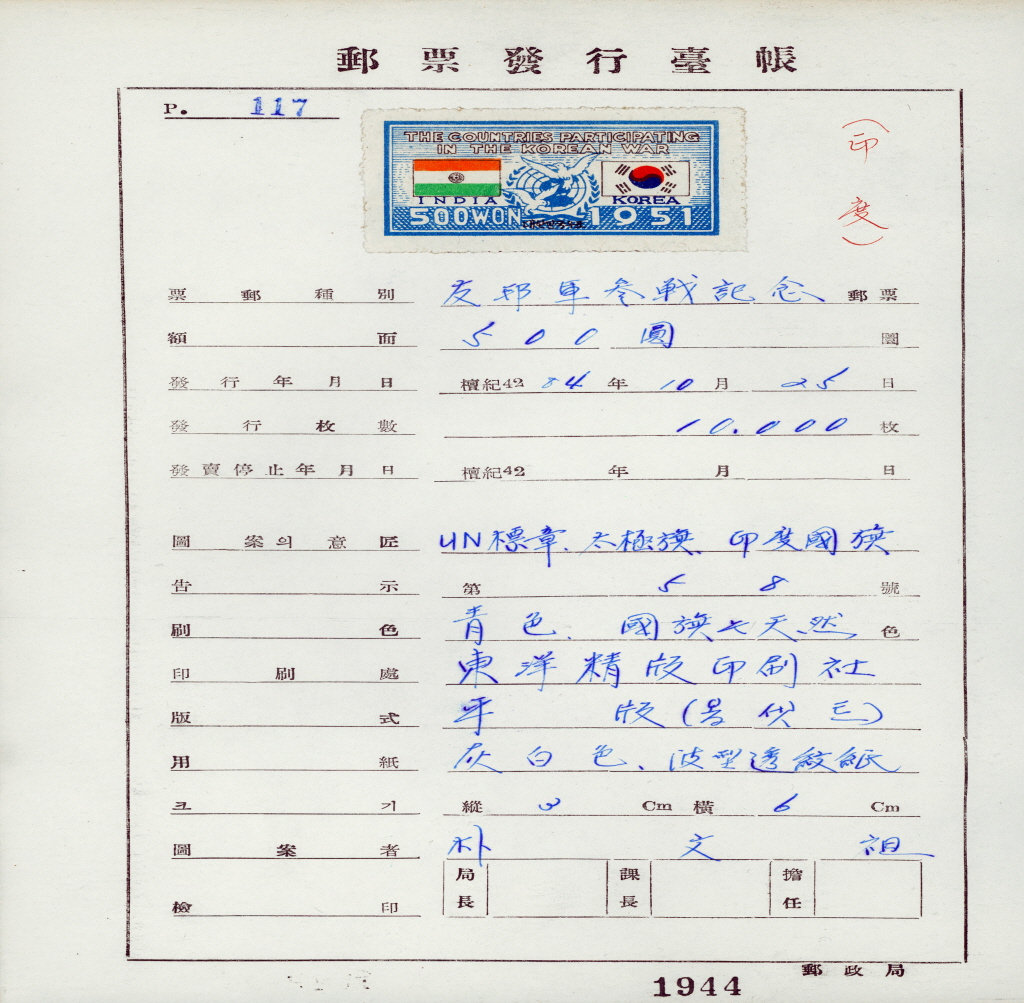 郵票發行臺帳
P. 117
THE COUNTRIES PARTICIPATING
IN THE KOREAN WAR
INDIA KOREA
500WON 1951
(印度)
票郵種別 友邦軍參戰記念 郵票
額面 500圓 圜
發行年月日 檀紀4284年10月25日
發行枚數 10.000枚
發賣停止年月日 檀紀42 年 月 日
圖案의意匠 UN標章、太極旗、印度國旗
告示 第58號
刷色 青色、國旗七天然色
印刷處 東洋精版印刷社
版式 平版
用紙 灰白色、波型透紋紙
크기 縱 3 Cm 橫 6 Cm
圖案者 朴文祖
檢印 局長 課長 擔任
郵政局
1944